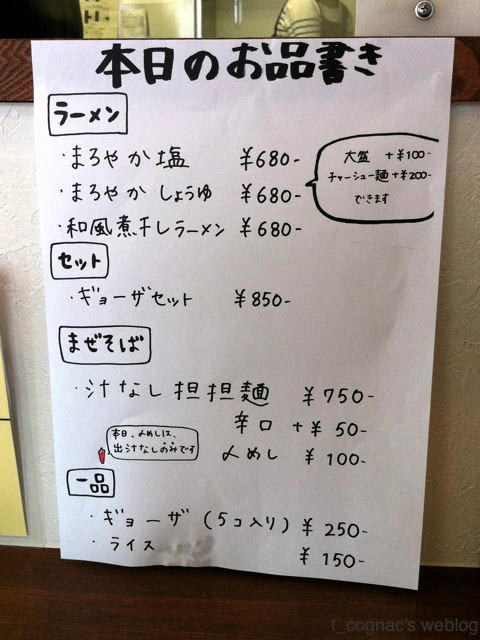 本日のお品書き
ラーメン
・まろやか塩 ¥680-
・まろやかしょうゆ ¥680-
・和風煮干しラーメン ¥680-
大盛 +¥100-
チャーシュー麺 +¥200-
できます
セット
・ギョーザセット ¥850-
まぜそば
・汁なし担担麺 ¥750-
辛口 +¥50-
〆めし ¥100-
本日、〆めしは、
出汁なしのみです
一品
・ギョーザ(5コ入り) ¥250-
・ライス ¥150-
t_cognac's weblog